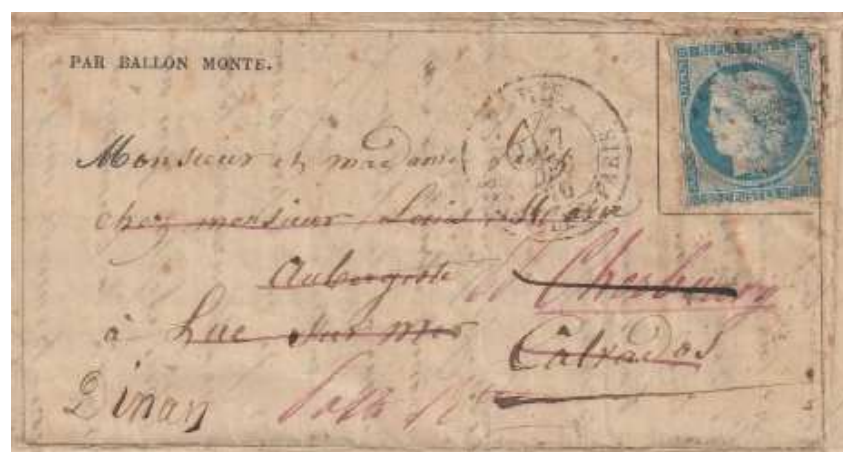 PAR BALLON MONTÉ.
PARIS
Monsieur et madame
chez monsieur Louis
Aubergiste
Cherbourg
à Luc sur mer
Calvados
Dinan